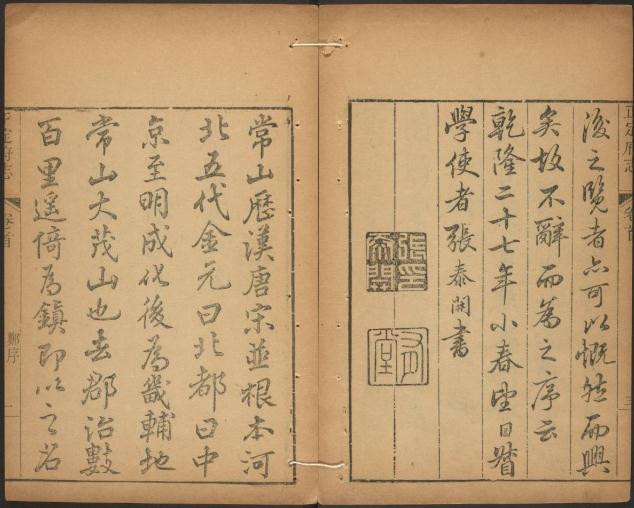 正定府志
卷首
三
後之覽者亦可以慨然而興
矣故不辭而為之序云
乾隆二十七年小春望日督
學使者張泰開書
張泰開印
堂
常山歷漢唐宋並根本河
北五代金元曰北都曰中
京至明成化後為畿輔地
常山大茂山也去郡治數
百里遥倚為鎮即以之名
正定府志
卷之首
鄭序
一